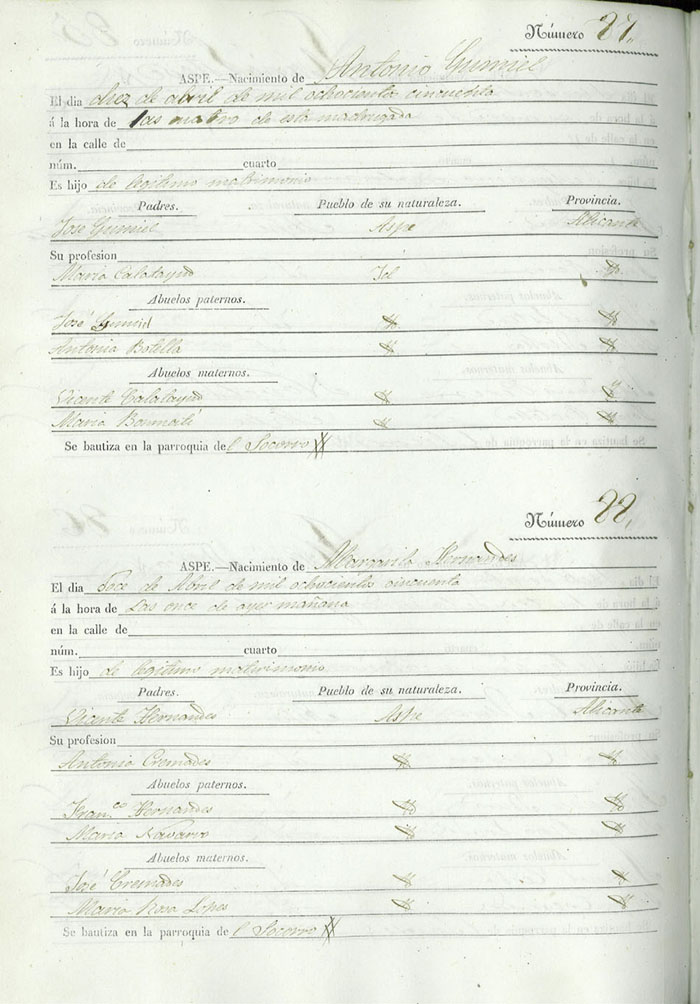 Número 21.
ASPE.—Nacimiento de Antonio Gumiel
El dia diez de abril de mil ochocientos cincuenta
á la hora de las cuatro de esta madrugada
en la calle de
núm. cuarto
Es hijo de legitimo matrimonio
Padres. Pueblo de su naturaleza. Provincia.
Jose Gumiel Aspe Alicante
Su profesion
Maria Calatayud
Abuelos paternos.
José Gumiel
Antonia Botella
Abuelos maternos.
Vicente Calatayud
Maria
Se bautiza en la parroquia del Socorro
Número 22.
ASPE.—Nacimiento de Margarita Hernandes
El dia Doce de Abril de mil ochocientos cincuenta
á la hora de Las once de ayer mañana
en la calle de
núm. cuarto
Es hijo de legitimo matrimonio
Padres. Pueblo de su naturaleza. Provincia.
Vicente Hernandes Aspe Alicante
Su profesion
Antonia Cremades
Abuelos paternos.
Fran.co Hernandes
Maria Navarro
Abuelos maternos.
José Cremades
Maria Rosa Lopes
Se bautiza en la parroquia de l Socorro